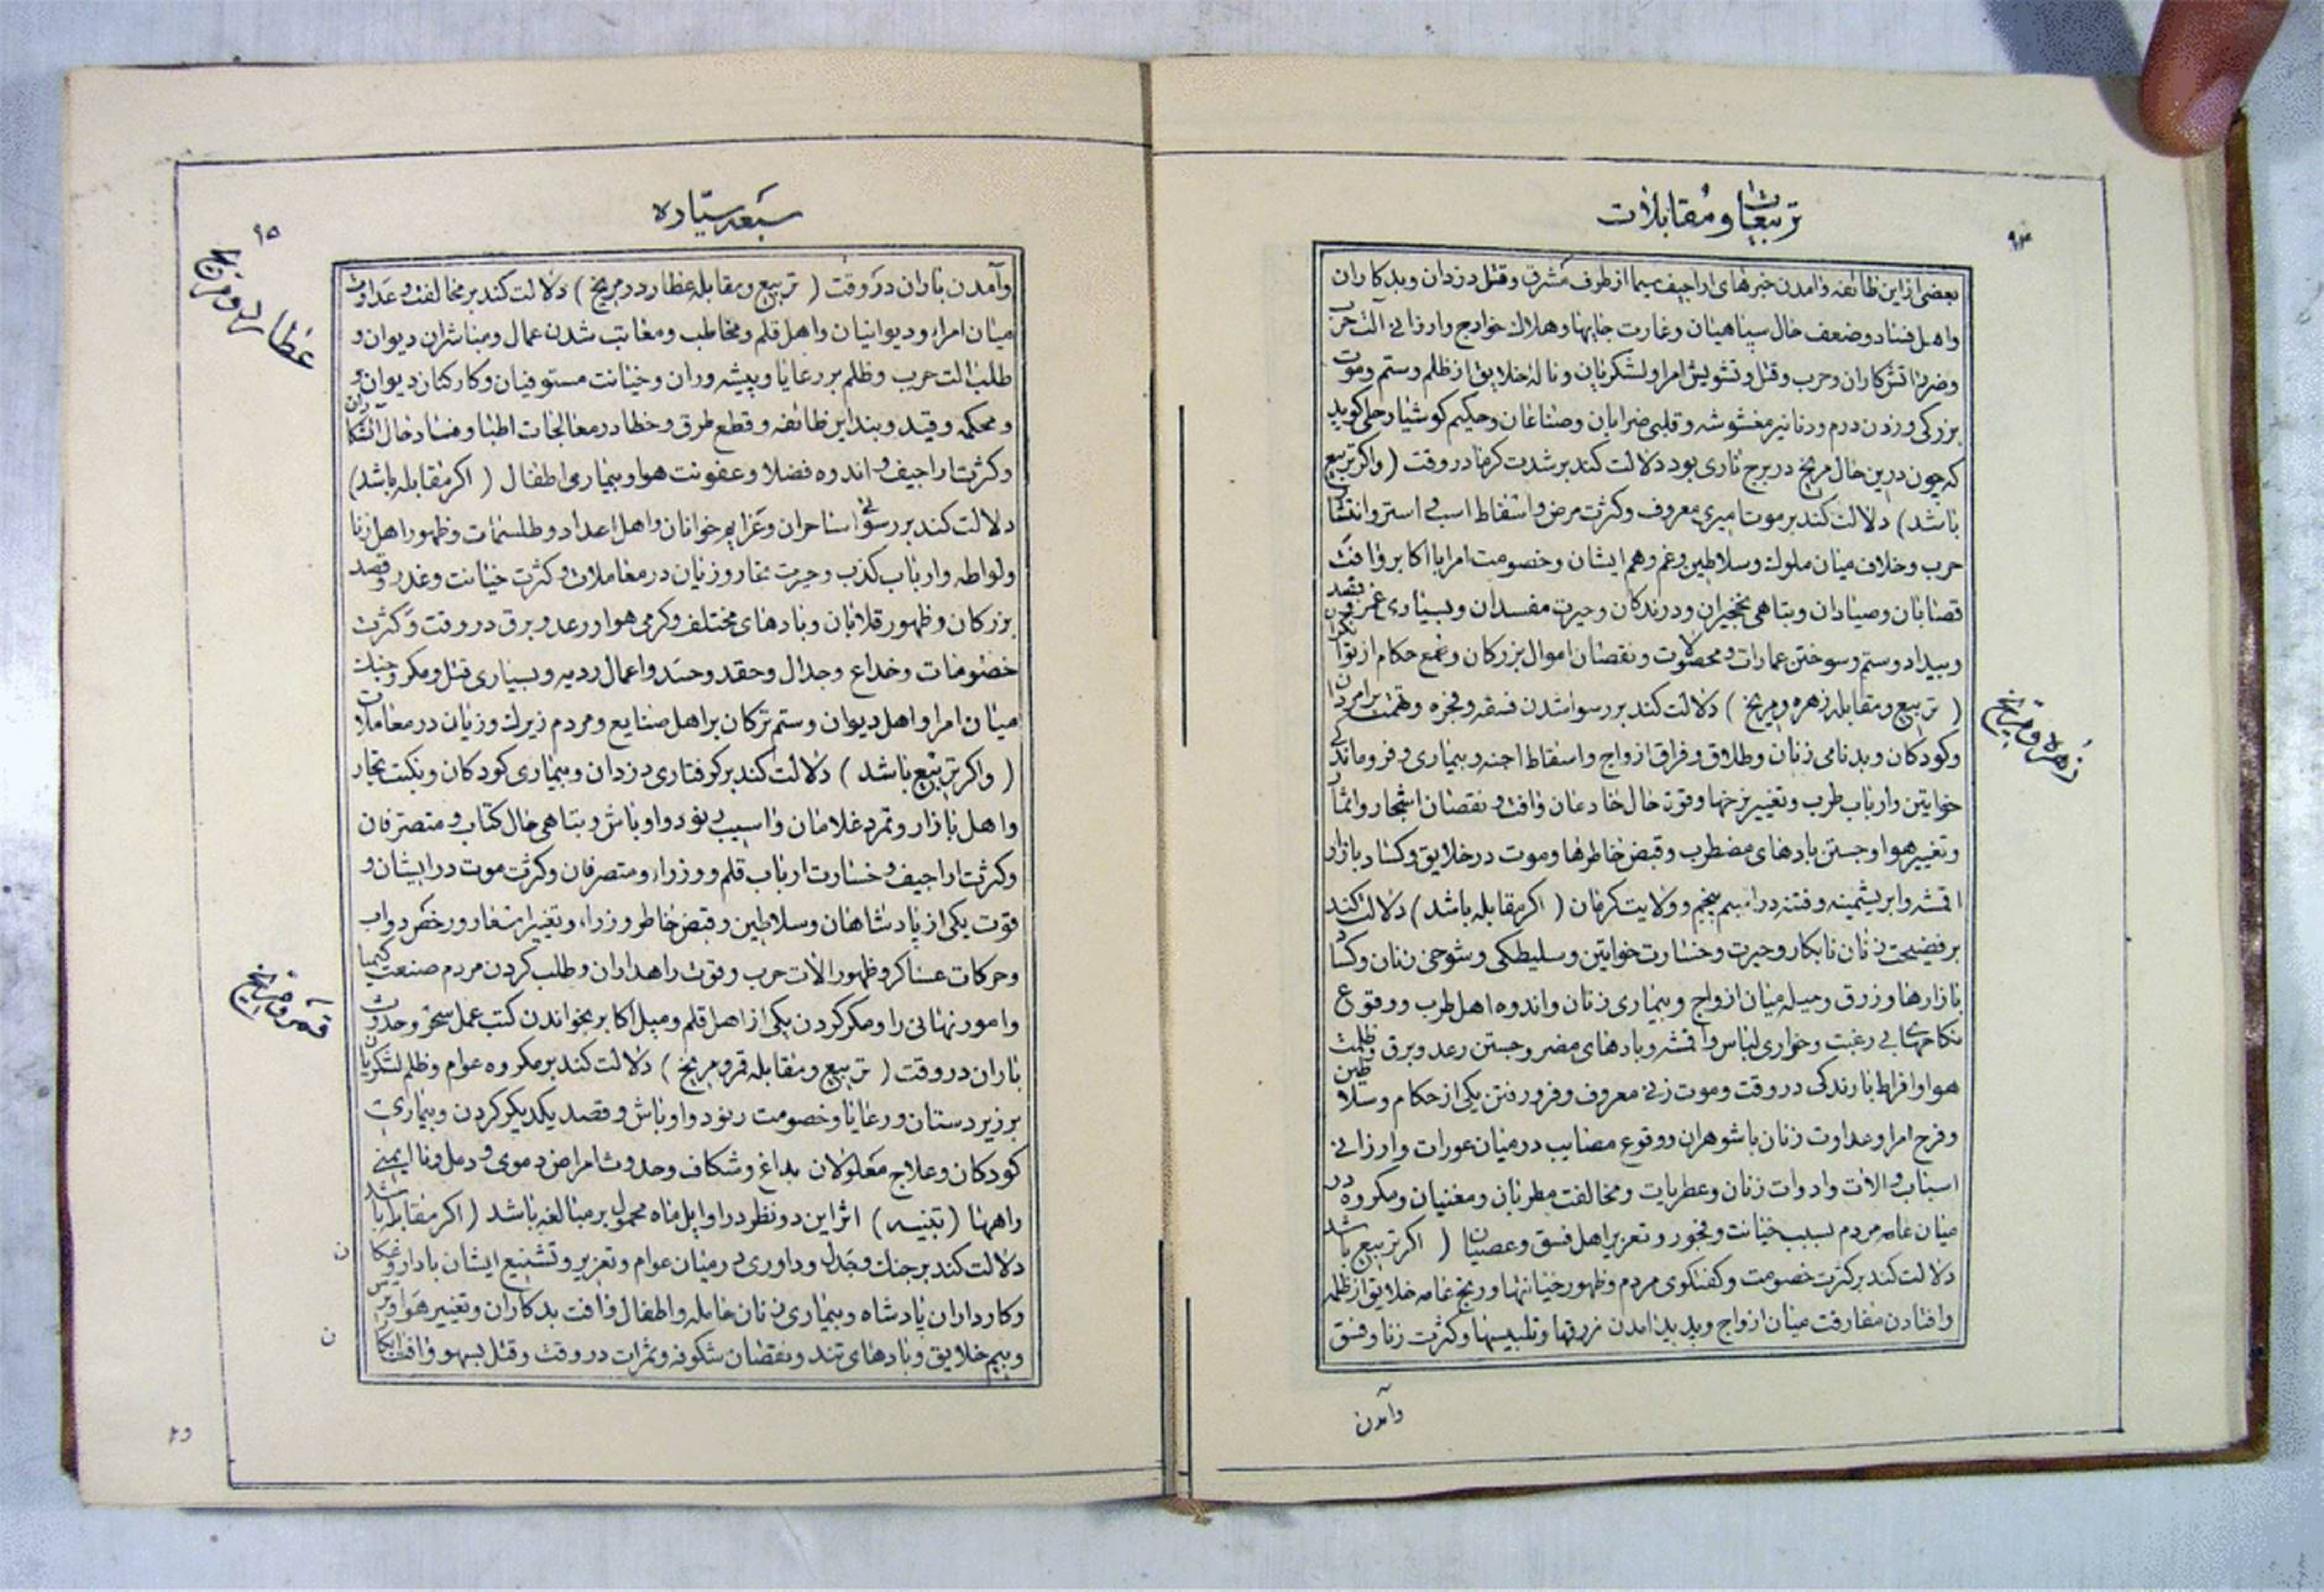 تربیعات و مقابلات
۹۴
بعضی از این طائفه وامدن خبرهای اراجیف سیما از طرف مشرق وقتل دزدان وبدکاران
واهل فساد وضعف حال سپاهیان وغارت جایها وهلاك خوارج وارزانی الت حرب
وضرر اتش کاران وحرب وقتل وتشویش امرا ولشکریان وناله خلایق از ظلم وستم وموت
بزرکی وزدن درم ودنانیر مغشوشه وقلبی ضرابان وصناعان وحکیم کوشیار جلی کوید
که چون درین حال مریخ در برج ناری بود دلالت کند بر شدت کرما در وقت (واکر تربیع
باشد) دلالت کند بر موت امیری معروف وکثرت مرض واسقاط اسب و استر وانتشار
حرب وخلاف میان ملوك وسلاطین وغم وهم ایشان وخصومت امرا با اکابر وافت
قصابان وصیادان وتباهی نخجیران ودرندکان وحیرت مفسدان وبسیاری
وبیداد وستم وسوختن عمارات ومحصولات ونقصان اموال بزرکان و حکام از
( تربیع ومقابله زهره ومریخ ) دلالت کند بر رسوا شدن فسقه وفجره وتهمت بر امردان
وکودکان وبدنامی زنان وطلاق وفراق ازواج واسقاط اجنه وبیماری وفروماندکی
خواتین وارباب طرب وتغییر نرخها وقوت حال خادمان وافت ونقصان اشجار واثمار
وتغییر هوا وجستن بادهای مضطرب وقبض خاطرها وموت در خلایق وکساد بازار
اقمشه وابریشمینه وفتنه در اقلیم پنجم وولایت کرمان ( اکر مقابله باشد) دلالت کند
بر فضیحت زنان نابکار وحیرت وخسارت خواتین وسلیطکی وشوخی زنان وکساد
بازارها وزرق وحیله میان ازواج وبیماری زنان واندوه اهل طرب ووقوع
نکاحهای بی رغبت وخواری لباس واقمشه وبادهای مضر وجستن رعد وبرق وظلمت
هوا وافراط بارندکی در وقت وموت زنی معروف وفرو رفتن یکی از حکام وسلاطین
وفرح امرا وعداوت زنان با شوهران ووقوع مصایب در میان عورات وارزانی
اسباب والات وادوات زنان وعطریات ومخالفت مطربان ومغنیان ومکروه در
میان عامه مردم بسبب خیانت وفجور وتعزیر اهل فسق وعصیان ( اکر تربیع باشد
دلالت کند بر کثرت خصومت وکفتکوی مردم وظهور خیانتها ورنج عامه خلایق از ظلمه
وافتادن مفارقت میان ازواج وپدید امدن زرقها وتلبیسها وکثرت زنا وفسق
زهره و مریخ
وآمدن
سبعه سیّاره
۹۵
وآمدن باران در وقت ( تربیع ومقابله عطارد ومریخ ) دلالت کند بر مخالفت وعداوت
میان امراء ودیوانیان واهل قلم ومخاطب ومعاتب شدن عمال ومباشران دیوان و
طلب الت حرب وظلم بر رعایا وپیشه وران وخیانت مستوفیان وکارکنان دیوان و
ومحکمه وقید وبند این طائفه وقطع طرق وخطا در معالجات اطبا وفساد حال
وکثرت اراجیف واندوه فضلا وعفونت هوا وبیماری اطفال ( اکر مقابله باشد)
دلالت کند بر رسوائی ساحران وعزایم خوانان واهل اعداد وطلسمات وظهور اهل زنا
ولواطه وارباب کذب وحیرت تجار وزیان در معاملات وکثرت خیانت وغدر وقصد
بزرکان وظهور قلابان وبادهای مختلف وکرمی هوا ورعد وبرق در وقت وکثرت
خصومات وخداع وجدال وحقد وحسد واعمال ردیه وبسیاری قتل ومکر وجنك
میان امرا واهل دیوان وستم ترکان بر اهل صنایع ومردم زیرك وزیان در معاملات
( واکر تربیع باشد ) دلالت کند بر کرفتاری دزدان وبیماری کودکان ونکبت تجار
واهل بازار وتمرد غلامان واسیب رنود واوباش وتباهی حال کتاب ومتصرفان
وکثرت اراجیف وخسارت ارباب قلم ووزراء ومتصرفان وکثرت موت در ایشان و
فوت یکی از پادشاهان وسلاطین وقبض خاطر وزراء وتغییر اسعار ورخص دواب
وحرکات عساکر وظهور الات حرب وقوت راهداران وطلب کردن مردم صنعت کیمیا
وامور نهانی را ومکر کردن یکی از اهل قلم ومیل اکابر بخواندن کتب عمل سحر وحدوث
باران در وقت ( تربیع ومقابله قمر ومریخ ) دلالت کند بر مکروه عوام وظلم لشکریان
بر زیر دستان ورعایا وخصومت رنود واوباش وقصد یکدیکر کردن وبیماری
کودکان وعلاج معلولان بداغ وشکاف وحدوث امراض دموی ودمل وناایمنی
راهها (تنبیه) اثر این دو نظر در اوایل ماه محمول بر مبالغه باشد ( اکر مقابله باشد
دلالت کند بر جنك وجدل وداوری در میان عوام وتعزیر وتشنیع ایشان با داروغکان
وکارداران پادشاه وبیماری زنان حامله واطفال وافت بدکاران وتغییر هوا وترس
وبیم خلایق وبادهای تند ونقصان شکوفه وثمرات در وقت وقتل بسهو وافت
عطارد و مریخ
قمر و مریخ